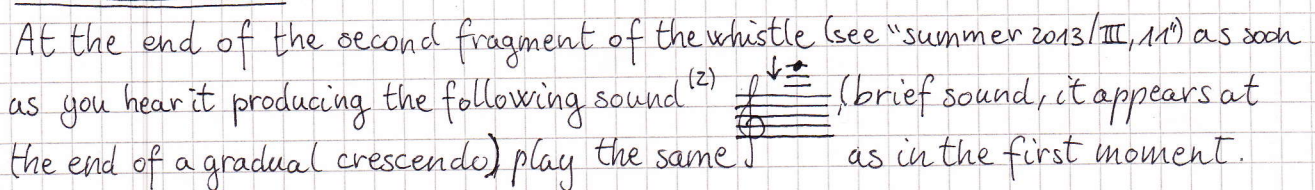 At the end of the second fragment of the whistle (see "summer 2013/III, 11") as soon
as you hear it producing the following sound (2) (brief sound, it appears at
the end of a gradual crescendo) play the same as in the first moment.